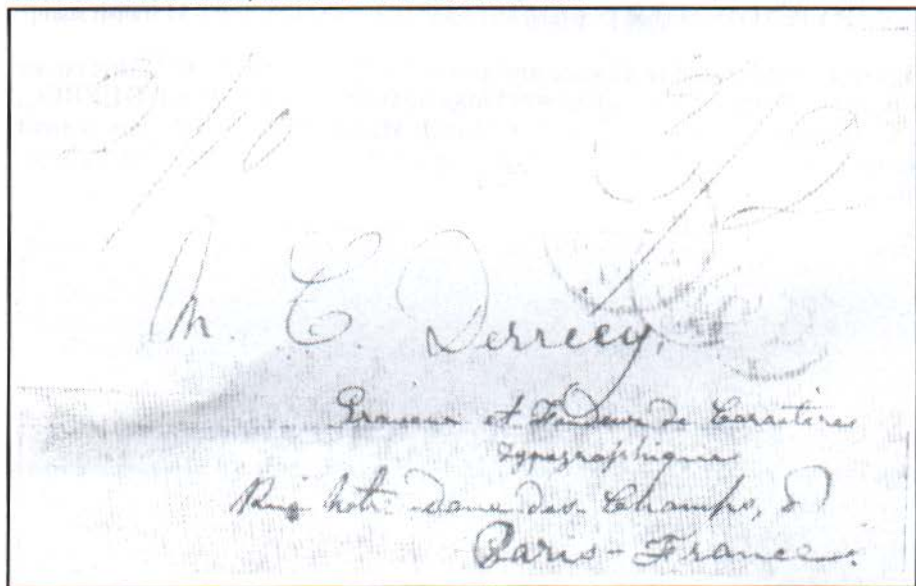 M. C. Derriey,
Graveur et Fondeur de Caractères
typographiques
Notre Dame des Champs,
Paris - France.